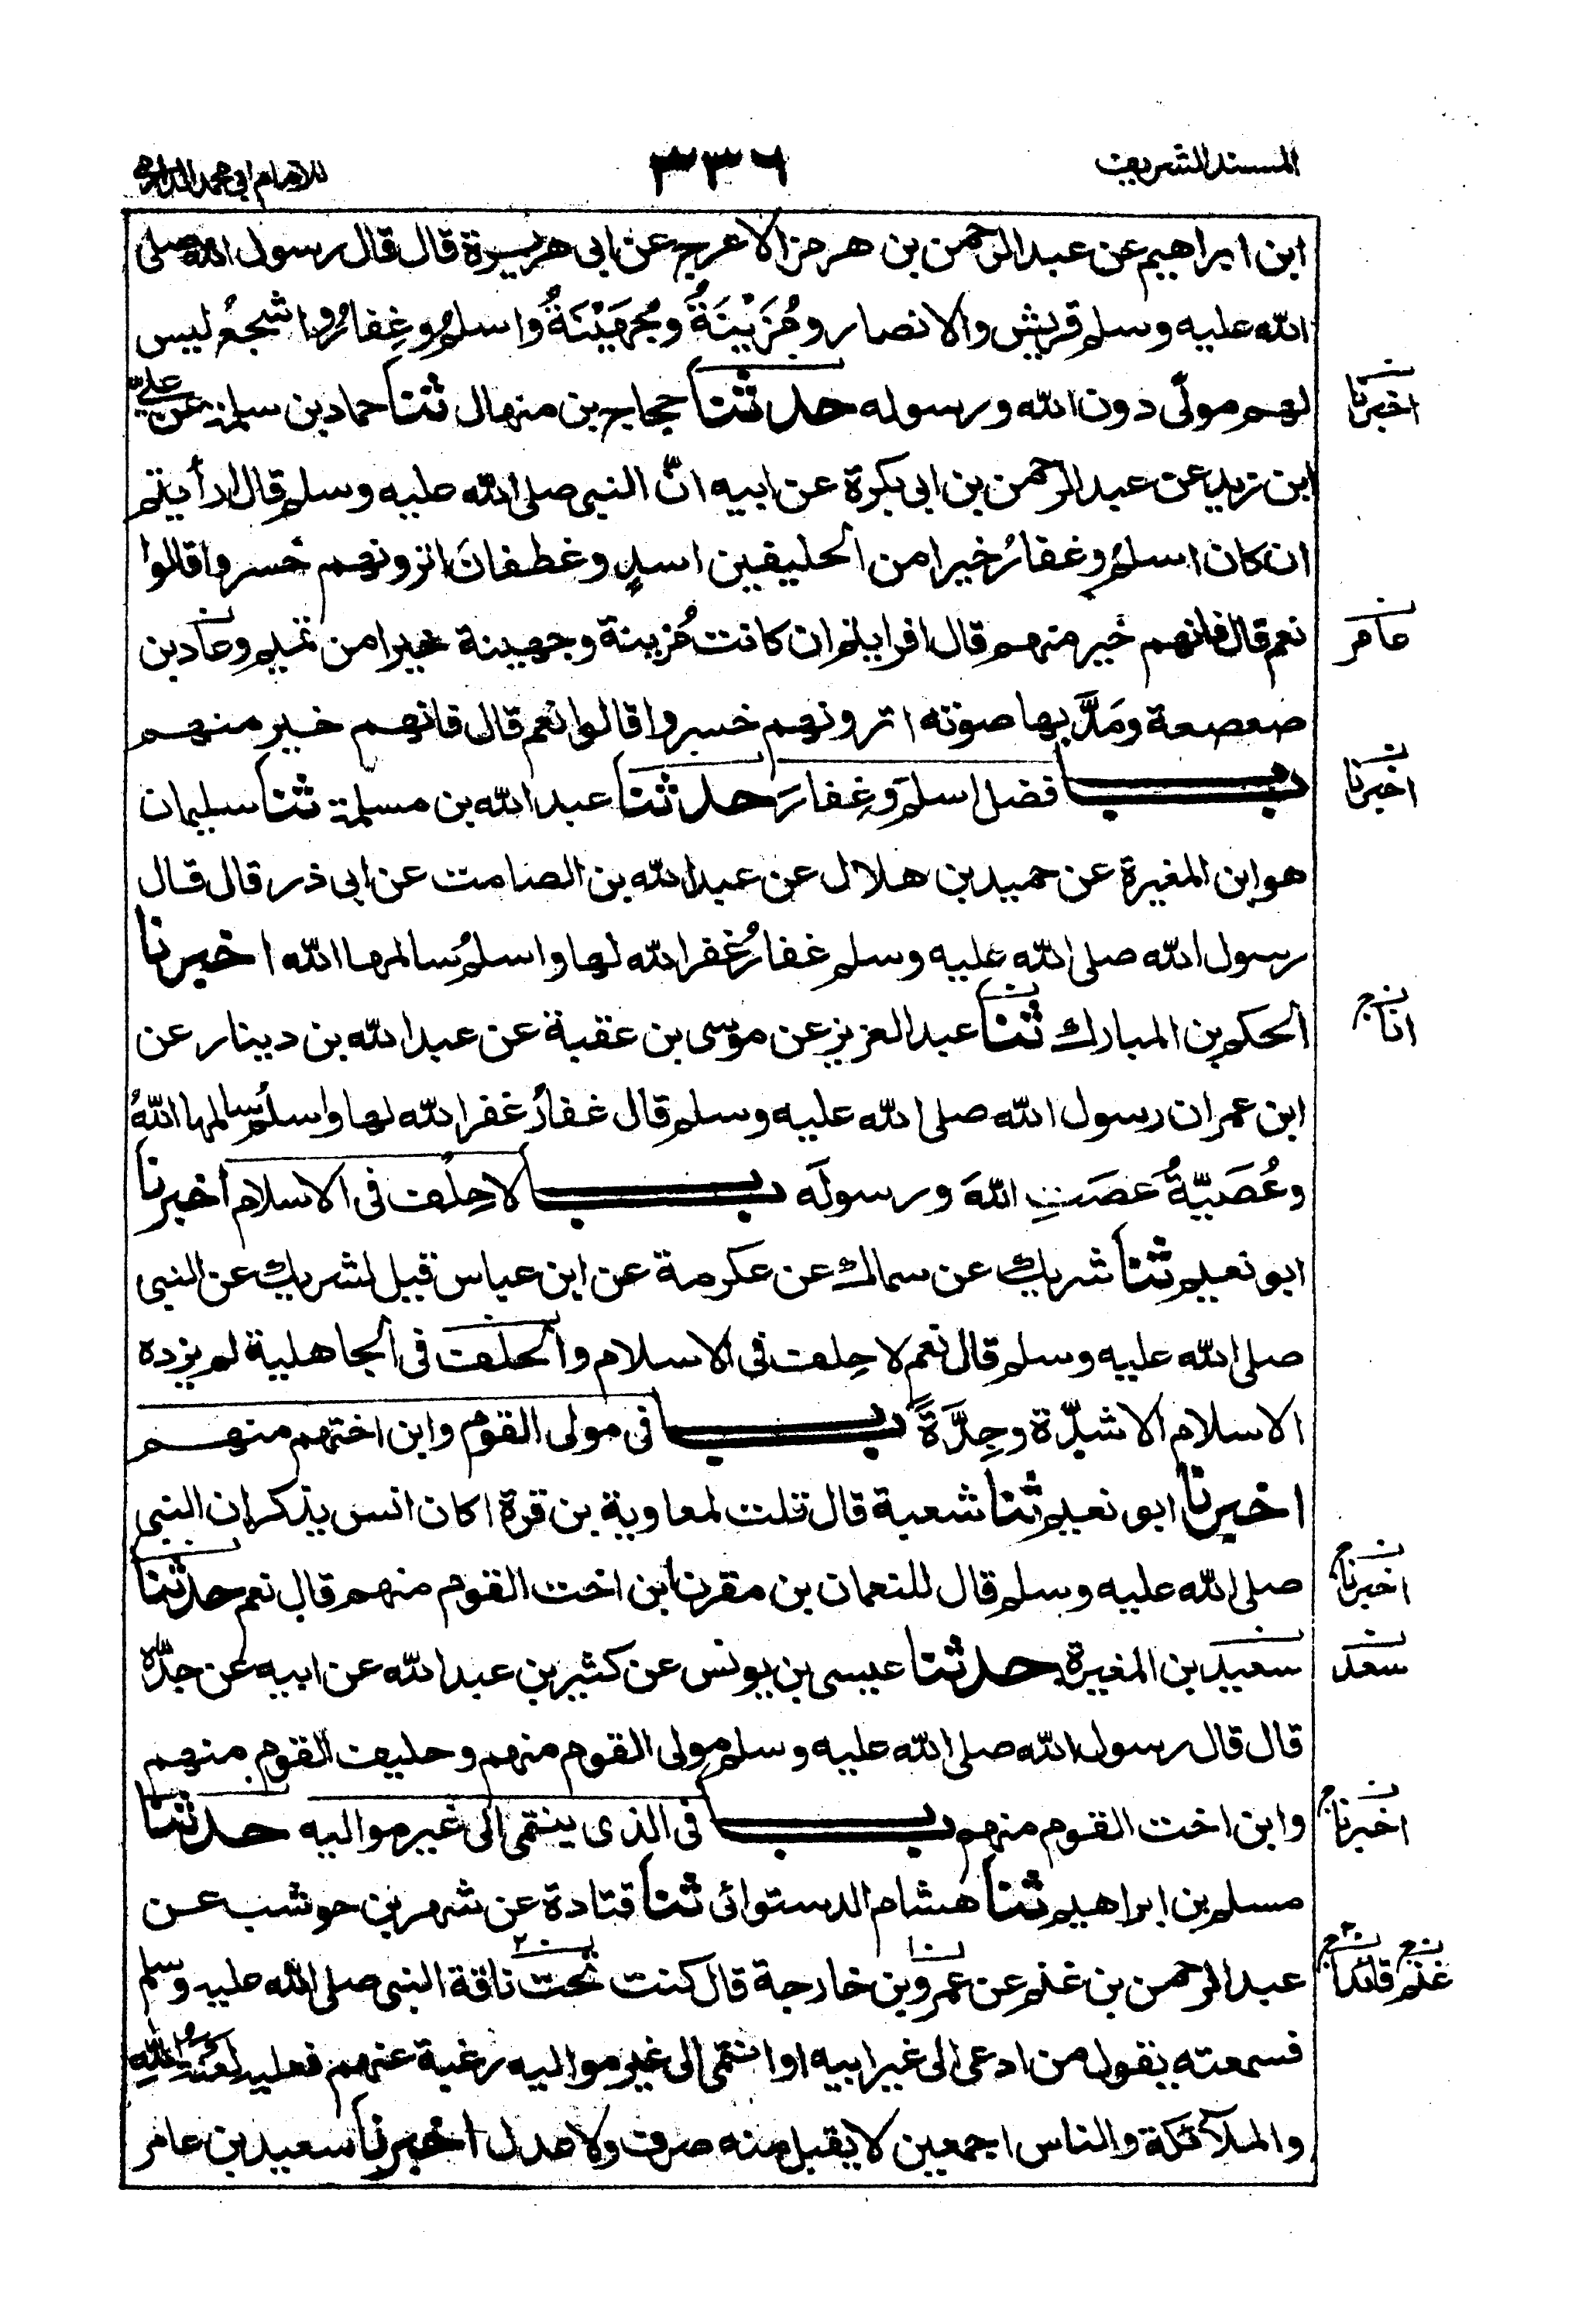 المسند الشريف ٣٣٦ للامام ابى محمد الدارمى
ابن ابراهيم عن عبد الرحمن بن هرمز الاعرج عن ابى هريرة قال قال رسول الله صلى
الله عليه وسلم قريش والانصار ومُزَيْنَةُ وجُهَيْنَةُ واسلمُ وغِفارُ واشجعُ ليس
لهم مولًى دون الله ورسوله حدثنا حجاج بن منهال ثنا حماد بن سلمة عن علىّ
اخبرنا
ابن زيد عن عبد الرحمن بن ابى بكرة عن ابيه انّ النبى صلى الله عليه وسلم قال ارأيتم
ان كان اسلمُ وغفارُ خيرا من الحليفين اسدٍ وغطفانَ اترونهم خسروا قالوا
نعم قال فانهم خير منهم قال افرايتم ان كانت مُزينة وجهينة خيرا من تميم وعاد بن
عامر
صعصعة ومَدَّ بها صوته اترونهم خسروا قالوا نعم قال فانهم خير منهم
باب فضل اسلمَ وغِفارَ حدثنا عبد الله بن مسلمة ثنا سليمان
اخبرنا
هو ابن المغيرة عن حميد بن هلال عن عبد الله بن الصامت عن ابى ذر قال قال
رسول الله صلى الله عليه وسلم غفارُ غفر الله لها واسلمُ سالمها الله اخبرنا
الحكم بن المبارك ثنا عبد العزيز عن موسى بن عقبة عن عبد الله بن دينار عن
انا
ابن عمر ان رسول الله صلى الله عليه وسلم قال غفارُ غفر الله لها واسلمُ سالمها اللهُ
وعُصَيّةُ عصَتِ اللهَ ورسولَه باب لا حِلْف فى الاسلام اخبرنا
ابو نعيم ثنا شريك عن سماك عن عكرمة عن ابن عباس قيل لشريك عن النبى
صلى الله عليه وسلم قال نعم لا حِلف فى الاسلام والحلف فى الجاهلية لم يزده
الاسلام الا شدّة وحِدَّةً باب فى مولى القوم وابن اختهم منهم
اخبرنا ابو نعيم ثنا شعبة قال قلت لمعاوية بن قرة اكان انس يذكر ان النبى
صلى الله عليه وسلم قال للنعمان بن مقرن ابن اخت القوم منهم قال نعم حدثنا
اخبرنا
سعيد بن المغيرة حدثنا عيسى بن يونس عن كثير بن عبد الله عن ابيه عن جدّه
سعد
قال قال رسول الله صلى الله عليه وسلم مولى القوم منهم وحليف القوم منهم
وابن اخت القوم منهم باب فى الذى ينتمى الى غير مواليه حدثنا
اخبرنا
مسلم بن ابراهيم ثنا هشام الدستوائى ثنا قتادة عن شهر بن حوشب عن
عبد الرحمن بن غنم عن عمرو بن خارجة قال كنت تحت ناقة النبى صلى الله عليه وسلم
غنم
فسمعته يقول من ادعى الى غير ابيه او انتمى الى غير مواليه رغبة عنهم فعليه لعنة اللهِ
والملآئكة والناس اجمعين لا يقبل منه صرف ولا عدل اخبرنا سعيد بن عامر